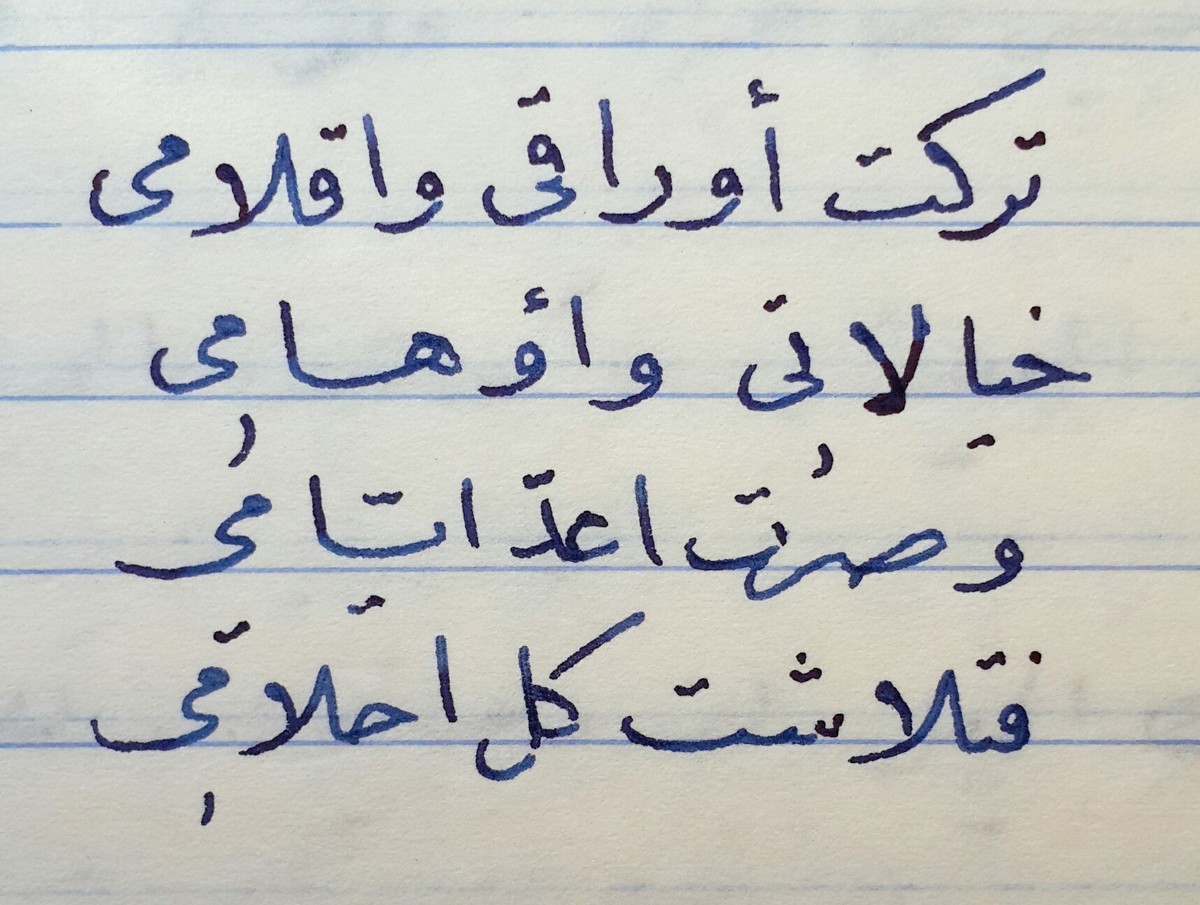 تركت أوراقى واقلامى
خيالاتى وأوهامى
وصرت اعدّ ايّامي
فتلاشت كل احلامى